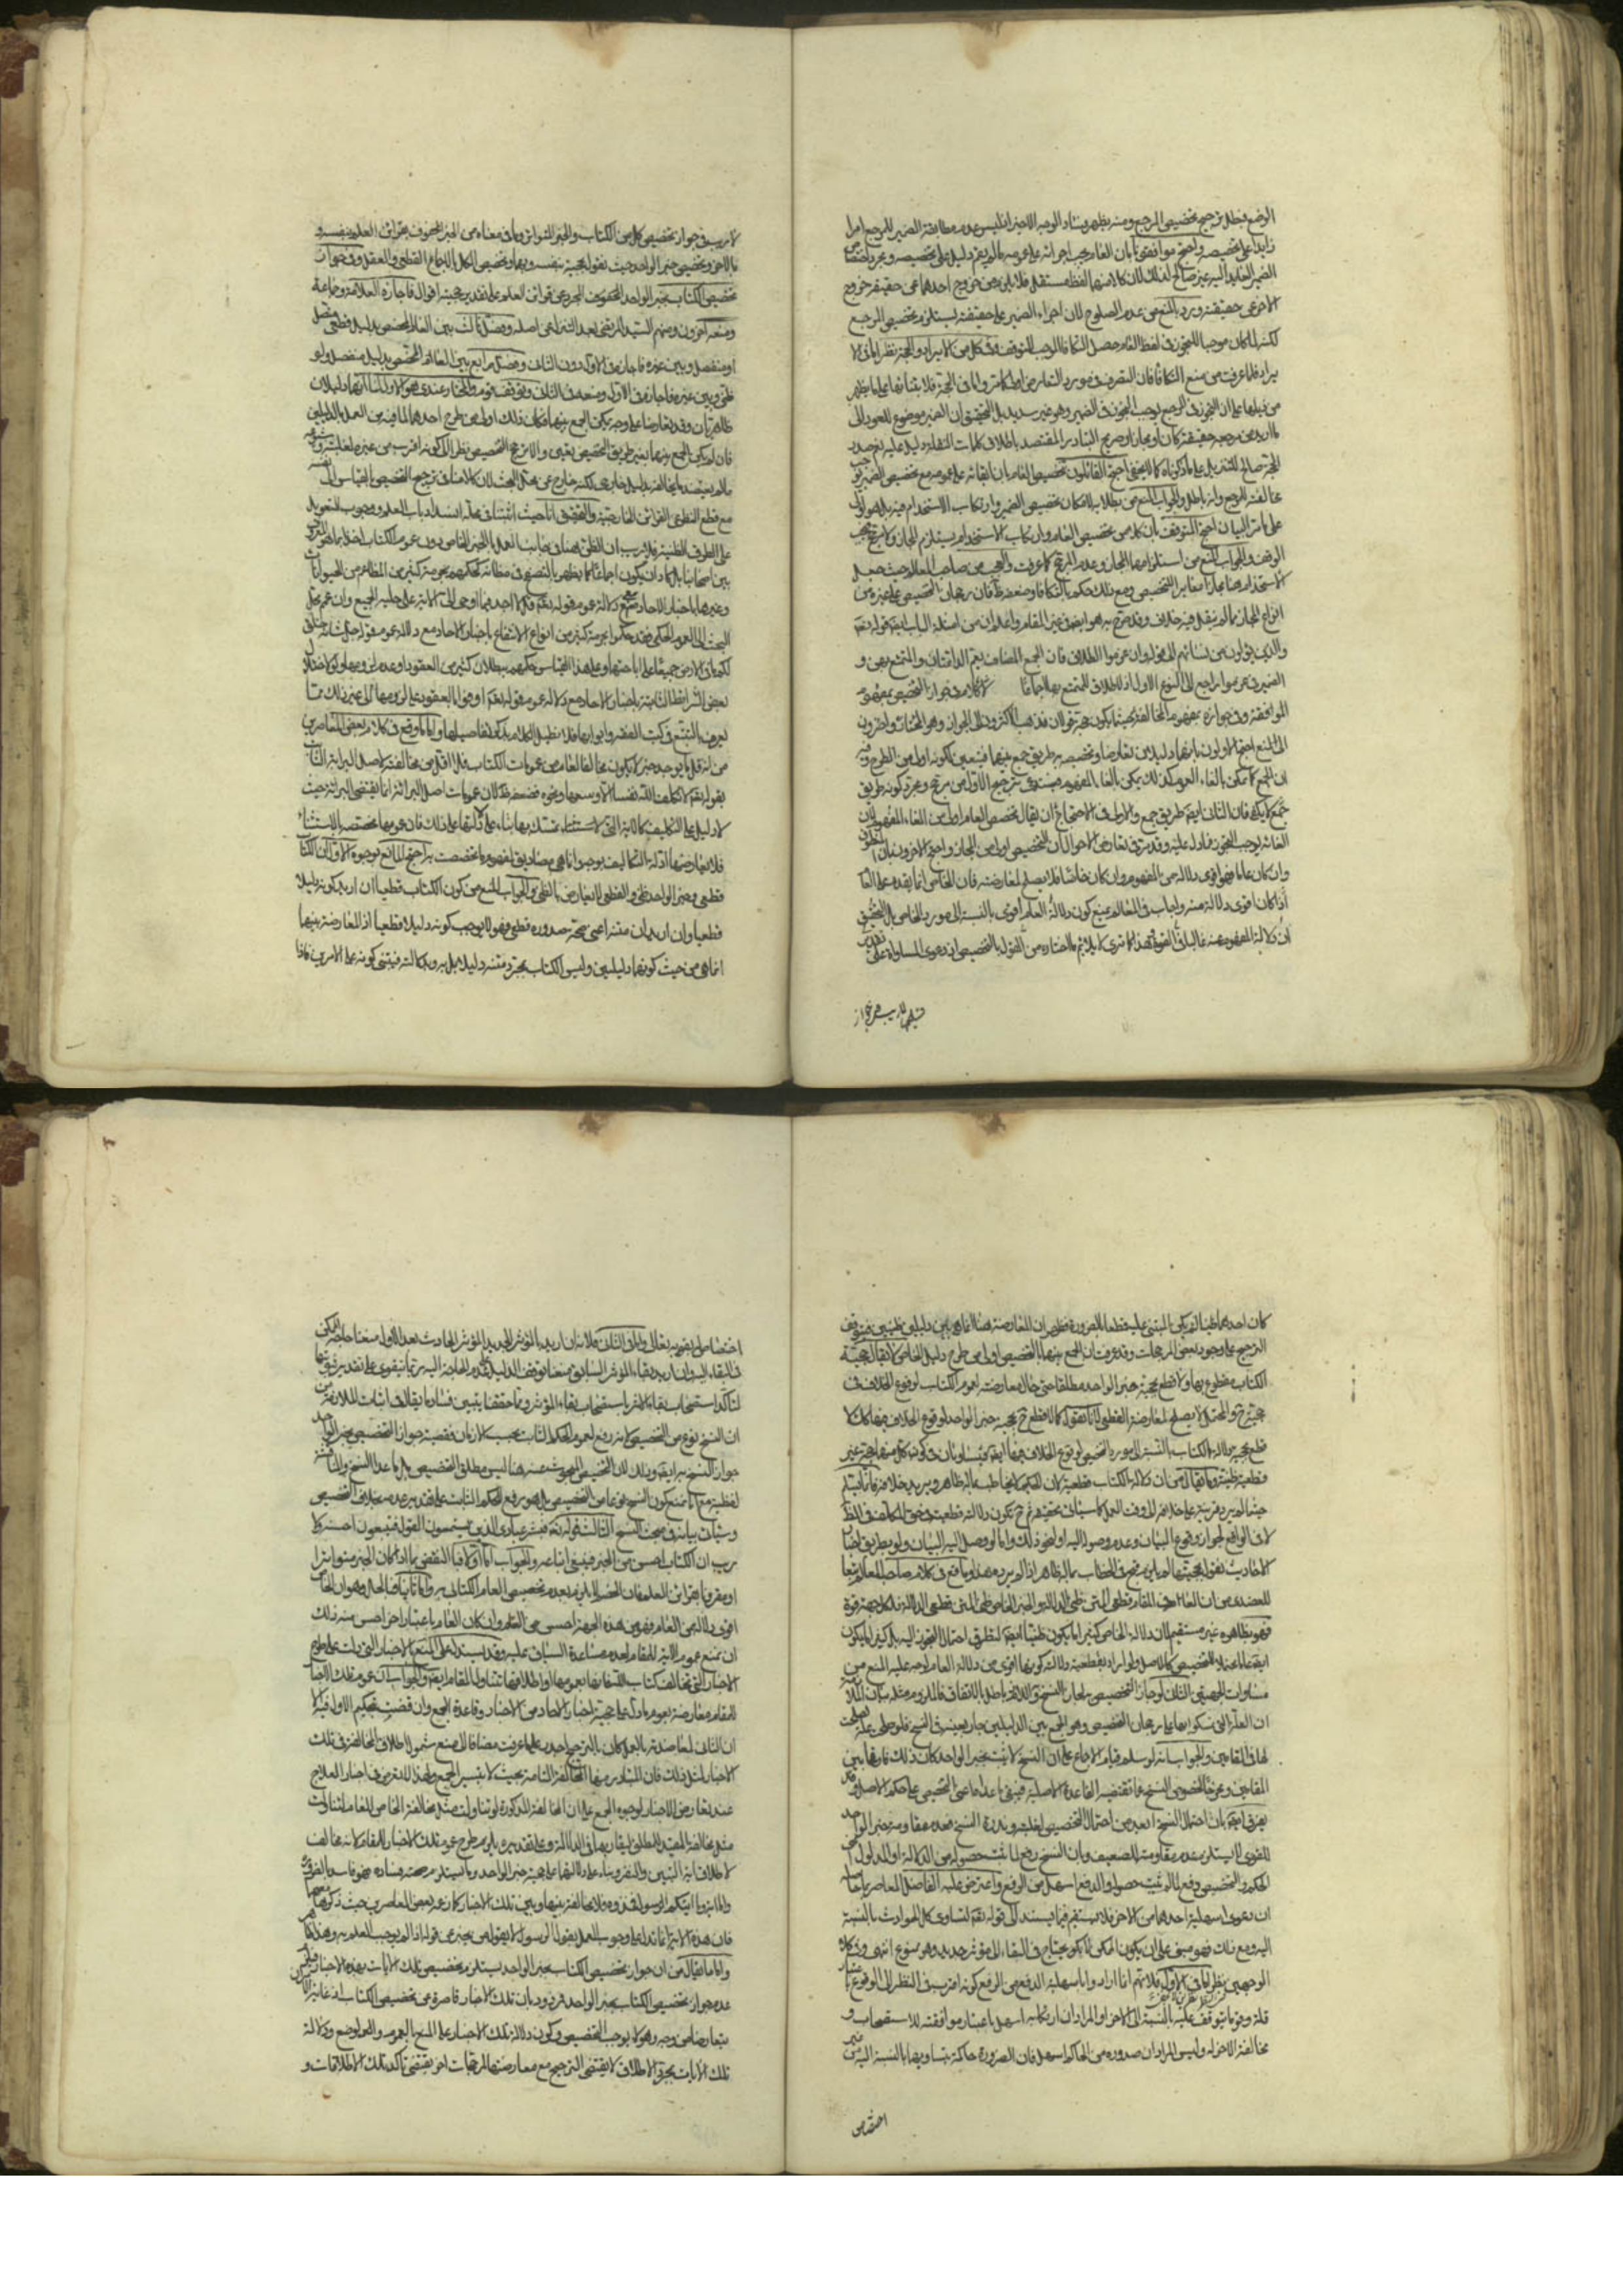 الوضع فبطل ترجيح تخصيص المرجع ومنه يظهر فساد الوجه الاخير اذ ليس عدم مطابقة الضمير للمرجع امرا
زايدا على تخصيصه واحتج موافقونا بان العام يجب اجرائه على عمومه ما لم يقم دليل على تخصيصه ومجرد اختصاص
الضمير العايد اليه غير صالح لذلك لان كلا منهما لفظ مستقل فلا يلزم من خروج احدهما عن حقيقته خروج
الاخر عن حقيقته ويرد بالمنع من عدم الصلوح لان اجراء الضمير على حقيقته يستلزم تخصيص المرجع
لكنه لما كان موجبا للتجوز في لفظ العام حصل التكافا الموجب للتوقف وفي كل من الايراد والحجة نظر اما في الا
يراد فلما عرفت من منع التكافا فان التصرف في مورد التعارض اولى كما مر واما في الحجة فلابتنائها على ما يظهر
من بيانها على ان التجوز في المرجع يوجب التجوز في الضمير وهو غير سديد بل التحقيق ان الضمير موضوع للعود الى
ما اريد من مرجعه حقيقة كان او مجازا وصريح التبادر المعتضد باطلاق كلمات النقلة دليل عليه نعم صدر
الحجة صالح للتنزيل على ما ذكرناه كما لا يخفى احتج القائلون بتخصيص العام بان ابقائه على عمومه مع تخصيص الضمير يوجب
مخالفته للمرجع وانه باطل والجواب المنع من بطلانه لامكان تخصيص الضمير وارتكاب الاستخدام فيه بل هو اولى
على ما مر البيان احتج المتوقف بان كلا من تخصيص العام وارتكاب الاستخدام يستلزم المجاز ولا مرجح فيجب
الوقف والجواب المنع من استلزامهما المجاز وعدم المرجح كما عرفت والعجب من صاحب المعالم حيث جعل
الاستخدام هنا مجازا مغايرا للتخصيص ومع ذلك حكم بالتكافا وضعفه ظ فان رجحان التخصيص على غيره من
انواع المجاز مما لم ينقل فيه خلاف وقد صرح به هو ايضا في غير المقام واعلم ان من امثلة الباب ايضا قوله تعالى
والذين يؤلون من نسائهم الى قوله وان عزموا الطلاق فان الجمع المضاف يعم الدائمات والمتمتع بهن و
الضمير في عزموا راجع الى النوع الاول اذ لا طلاق للمتمتع بها اجماعا لا كلام في جواز التخصيص بمفهوم
الموافقة وفي جوازه بمفهوم المخالفة حيث ما يكون حجة قولان فذهب الاكثرون الى الجواز وهو المختار واخرون
الى المنع احتج الاولون بانهما دليلان تعارضا وتخصيصه به طريق جمع بينهما فيتعين لكونه اولى من الطرح وفيه
ان الجمع كما يمكن بالغاء العموم كذلك يمكن بالغاء المفهوم فيستدعي ترجيح الاول من مرجح ومجرد كونه طريق
جمع لا يكفي فان الثاني ايضا طريق جمع والاولى في الاحتجاج ان يقال تخصيص العام اولى من الغاء المفهوم لان
الغائه يوجب التجوز فيما دل عليه وقد مر في تعارض الاحوال ان التخصيص اولى من المجاز واحتج الاخرون بان المنطوق
وان كان عاما فهو اقوى دلالة من المفهوم وان كان خاصا فلا يصلح لمعارضته فان الخاص انما يقدم على العام
اذا كان اقوى دلالة منه واجاب في المعالم بمنع كون دلالة العام اقوى بالنسبة الى مورد الخاص بل التحقيق
ان دلالة المفهوم عنه غالبا في القوة وهذا كما ترى لا يلائم ما اختاره من القول بالتخصيص اذ دعوى المساواة على تقدير
فصل لا ريب في جواز
لا ريب في جواز تخصيص كل من الكتاب والخبر المتواتر وما في معناه من الخبر المحفوف بقرائن العلم بنفسه و
بالاخر وتخصيص خبر الواحد حيث نقول بحجيته بنفسه وبهما وتخصيص الكل بالاجماع القطعي والعقل وفي جواز
تخصيص الكتاب بخبر الواحد المجرد عن قرائن العلم على تقدير حجيته اقوال فاجازه العلامة وجماعة
ومنعه اخرون ومنهم السيد المرتضى بعد التنزل عن اصله وفصل ثالث بين العام المخصص بدليل قطعي متصل
او منفصل وبين غيره فاجاز في الاول دون الثاني وفصل رابع بين العام المخصص بدليل منفصل ولو
ظني وبين غيره فاجازه في الاول ومنعه في الثاني وتوقف قوم والمختار عندي هو الاول لنا انهما دليلان
ظاهريان وقد تعارضا على وجه يمكن الجمع بينهما فكان ذلك اولى من طرح احدهما لما فيه من العمل بالدليلين
فان لم يكن الجمع بينهما بغير طريق التخصيص تعين والا ترجح التخصيص نظرا الى كونه اقرب من غيره لغلبته وشيوعه
ما لم يعتضد ما يخالفه بدليل خارجي لكنه خارج عن محل البحث لان كلامنا في ترجيح التخصيص بالقياس الى نفسه
مع قطع النظر عن القرائن الخارجية والتحقيق انا حيث اثبتنا في محله انسداد باب العلم ووجوب التعويل
على الطرق الظنية فلا ريب ان الظن هنا في جانب العمل بالخبر الخاص دون عموم الكتاب
بين اصحابنا بل كاد ان يكون اجماعا كما يظهر بالتصفح في مظانه كحكمهم بحرمة كثير من المطاعم من الحيوانات
وغيرها باخبار الاحاد مع دلالة عموم قوله تعالى قل لا اجد فيما اوحي الى الاية على حلية الجميع وان عم محل
البحث الى العموم الحكمي فقد حكموا بحرمة كثير من انواع الانتفاع باخبار الاحاد مع دلالة عموم قوله جل شانه خلق
لكم ما في الارض جميعا على اباحتها وعلى هذا القياس حكمهم ببطلان كثير من العقود او عدم لزومها ولو لاختلال
بعض الشرايط الثابتة باخبار الاحاد مع دلالة عموم قوله تعالى اوفوا بالعقود على لزومها الى غير ذلك مما
يعرف بالتتبع في كتب الفقه وابوابها فلا نطيل الكلام بذكر تفاصيلها واما ما وقع في كلام بعض المعاصرين
من انه قل ما يوجد خبر لا يكون مخالفا لعام من عمومات الكتاب فلا اقل من مخالفته لاصل البرائة الثابت
بقوله تعالى لا يكلف الله نفسا الا وسعها ونحوه فضعفه ظ لان عمومات اصل البرائة انما يقتضي البرائة حيث
لا دليل على التكليف
فلا يعارضها ادلة التكاليف بوجه احتج المانع بوجوه الاول ان الكتاب
قطعي وخبر الواحد ظني والقطعي لا يعارض بالظني والجواب المنع من كون الكتاب قطعيا ان اريد كونه دليلا
قطعيا وان اريد ان متنه اعني صحة صدوره قطعي فهو لا يوجب كونه دليلا قطعيا اذ المعارضة بينهما
انما هي من حيث كونهما دليلين وليس الكتاب بمجرد متنه دليلا بل به وبدلالته فيبتني كونه على الامرين فاذا
كان احدهما ظنيا لم يكن المبتني عليه قطعيا بالضرورة فظهر ان المعارضة هنا انما هي بين دليلين ظنيين فيتوقف
الترجيح على وجود بعض المرجحات وقد عرفت ان الجمع بينهما بالتخصيص اولى من طرح دليل الخاص لا يقال حجية
الكتاب مقطوع بها ولا قطع بحجية خبر الواحد مطلقا حتى حال معارضته لعموم الكتاب لوقوع الخلاف في
حجيته ح والمحتمل لا يصلح لمعارضة القطعي لانا نقول كما لا قطع ح بحجية خبر الواحد لوقوع الخلاف فيها كذلك لا
قطع بحجية دلالة الكتاب بالنسبة الى مورد التخصيص لوقوع الخلاف فيها ايضا فيتساويان في كون كل منهما حجة غير
قطعية ظنية وما يقال من ان دلالة الكتاب قطعية لان الحكيم لا يخاطب بما له ظاهر ويريد خلافه فانما يتم
حيث لم يرد قرينة على خلافه الى وقت العمل كما سياتي تحقيقه ثم ح تكون دلالته قطعية في حق المكلف في الظاهر
لا في الواقع لجواز وقوع البيان وعدم وصوله اليه او نحو ذلك واما لو وصل اليه البيان ولو بطريق اخبار
الاحاد حيث نقول بحجيتها لم يلزم قبح في الخطاب بما له ظاهر اذا لم يرد هذا وما وقع في كلام صاحب المعالم تبعا
للعضدي من ان العام في المقام قطعي المتن ظني الدلالة والخبر الخاص ظني المتن قطعي الدلالة فلكل جهة قوة
فهو بظاهره غير مستقيم لان دلالة الخاص كثيرا ما يكون ظنيا ايضا لتطرق احتمال التجوز اليه بل كثيرا ما يكون
ايضا عاما محتملا للتخصيص كالاصل ولو اراد بقطعية دلالته كونها اقوى من دلالة العام توجه عليه المنع من
مساوات الجهتين الثاني لو جاز التخصيص به لجاز النسخ به واللازم باطل بالاتفاق فالملزوم مثله بيان الملازمة
ان العلة التي تمسكوا بها على رجحان التخصيص وهو الجمع بين الدليلين جار بعينه في النسخ فلو صلحت علة لصلحت
لها في المقامين والجواب انه لو سلم قيام الاجماع على ان النسخ لا يثبت بخبر الواحد كان ذلك فارقا بين
المقامين ومخرجا لخصوص النسخ عما تقتضيه القاعدة الاصلية فيبقى ما عداه اعني التخصيص على حكم الاصل وقد
يفرق ايضا بان احتمال النسخ ابعد من احتمال التخصيص لغلبته وندرة النسخ فعدم مقاومة خبر الواحد
للقوي لا يستلزم عدم مقاومته للضعيف وبان النسخ رفع لما ثبت حصوله من الدلالة او المدلول اعني
الحكم والتخصيص دفع لما لم يثبت حصوله والدفع اسهل من الرفع واعترض عليه الفاضل المعاصر بما حاصله
ان دعوى اسهلية احدهما من الاخر فلا يستقيم فيما يستند الى قوله تعالى لتساوي كل الحوادث بالنسبة
اليه ومع ذلك فهو مبني على ان يكون الممكن الباقي محتاج في البقاء الى مؤثر جديد وهو ممنوع انتهى وفي كلا
الوجهين نظر اما في الاول فلانهم انما ارادوا باسهلية الدفع من الرفع كونه اقرب في النظر الى الوقوع باعتبار
قلة وقوع ما يتوقف عليه بالنسبة الى الاخر او المراد ان ارتكابه اسهل باعتبار موافقته للاستصحاب و
مخالفة الاخر له وليس المراد ان صدوره من الحاكم اسهل فان الضرورة حاكمة بتساويهما بالنسبة اليه من غير
اختصاص
اختصاص له بقدرته تعالى واما في الثاني فلانه ان اريد بالمؤثر الجديد المؤثر الحادث بعد الاول منعنا حاجة الممكن
في البقاء اليه وان اريد بقاء المؤثر السابق منعنا توقف الدليل عليه وعدم الحاجة اليه
لتاكد استصحاب بقاء الاثر باستصحاب بقاء المؤثر ومما حققنا يتبين فساد ما يقال في اثبات الملازمة من
ان النسخ نوع من التخصيص لانه رفع لعموم الحكم الثابت بحسب الازمان فقضية جواز التخصيص بخبر الواحد
جواز النسخ به ايضا وذلك لان التخصيص المبحوث عنه هنا ليس مطلق التخصيص بل ما عدا النسخ والمناقشة
لفظية مع انا نمنع كون النسخ نوعا من التخصيص بل هو رفع الحكم الثابت على تقدير عدمه بخلاف التخصيص
وسياتي بيانه في مبحث النسخ الثالث قوله تعالى فبشر عبادي الذين يستمعون القول فيتبعون احسنه ولا
ريب ان الكتاب احسن من الخبر فينبغي اتباعه والجواب اما اولا فبالنقض بما اذا كان الخبر متواترا
او مقرونا بقرائن العلم فان الخصم لا يلتزم بعدم تخصيص العام الكتابي به واما ثانيا فبالحل وهو ان الخاص
اقوى دلالة من العام فهو من هذه الجهة احسن من العام وان كان العام باعتبار اخر احسن منه فلك
ان تمنع عموم الاية للمقام لعدم مساعدة السياق عليه وقد يستدل على المنع بالاخبار التي دلت على طرح
الاخبار التي تخالف كتاب الله تعالى فانها بعمومها او اطلاقها تتناول المقام ايضا والجواب ان عموم تلك الاخبار
للمقام معارضة بعموم ما دل على حجية اخبار الاحاد من الاخبار وقاعدة الجمع وان قضت بتحكيم الاول الا
ان الثاني لمعاضدته بالعمل كان بالترجيح اجدر على ما عرفت مضافا الى منع شمول اطلاق المخالفة في تلك
الاخبار لمثل ذلك فان المتبادر منها المخالفة التامة بحيث لا يتيسر الجمع ولهذا لم يتعرض في اخبار العلاج
عند تعارض الاخبار لوجوه الجمع على ان المخالفة المذكورة لو تناولت مثل مخالفة الخاص للعام لتناولت
مثل مخالفة المقيد للمطلق لتقاربهما في الدلالة وعلى تقديره يلزم طرح عموم تلك الاخبار للمقام لانه مخالف
لاطلاق اية التبين والنفر وبناء على دلالتهما على حجية خبر الواحد وما يستلزم صحته فساده فهو فاسد بالضرورة
واما اية وما اتيكم الرسول فخذوه فلا مخالفة بينها وبين تلك الاخبار كما زعمه بعض المعاصرين حيث ذكرها معهما
فان هذه الاية انما تدل على وجوب العمل بقول الرسول لا بقول من يخبر عن قوله اذا لم يوجب العلم به وهذا ظاهر
واما ما يقال من ان جواز تخصيص الكتاب بخبر الواحد يستلزم تخصيص تلك الايات بهذه الاخبار فيلزم من
عدم جواز تخصيص الكتاب بخبر الواحد فمردود بان تلك الاخبار قاصرة عن تخصيص الكتاب اذ غاية الامر ان
يتعارضا من وجه وهو لا يوجب التخصيص وكون دلالة تلك الاخبار على المنع بالعموم والوضع ودلالة
تلك الايات بمجرد الاطلاق لا يقتضي الترجيح مع معارضتها لمرجحات اخر يقتضي تاكد تلك الاطلاقات و